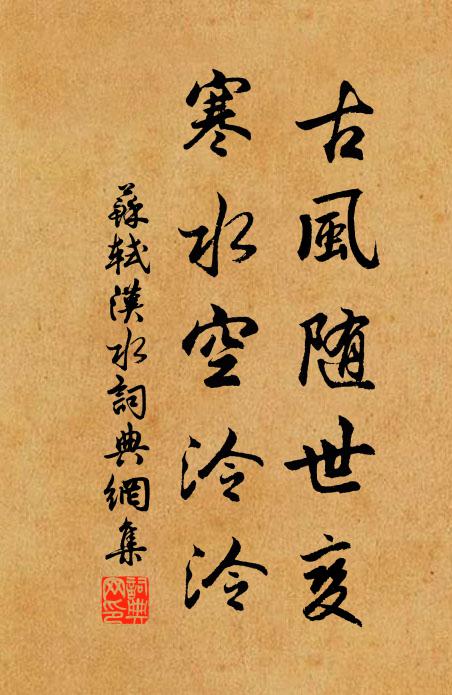 古風随世变
寒水空泠泠
蘇軾漢水詞典網集
詞典网印